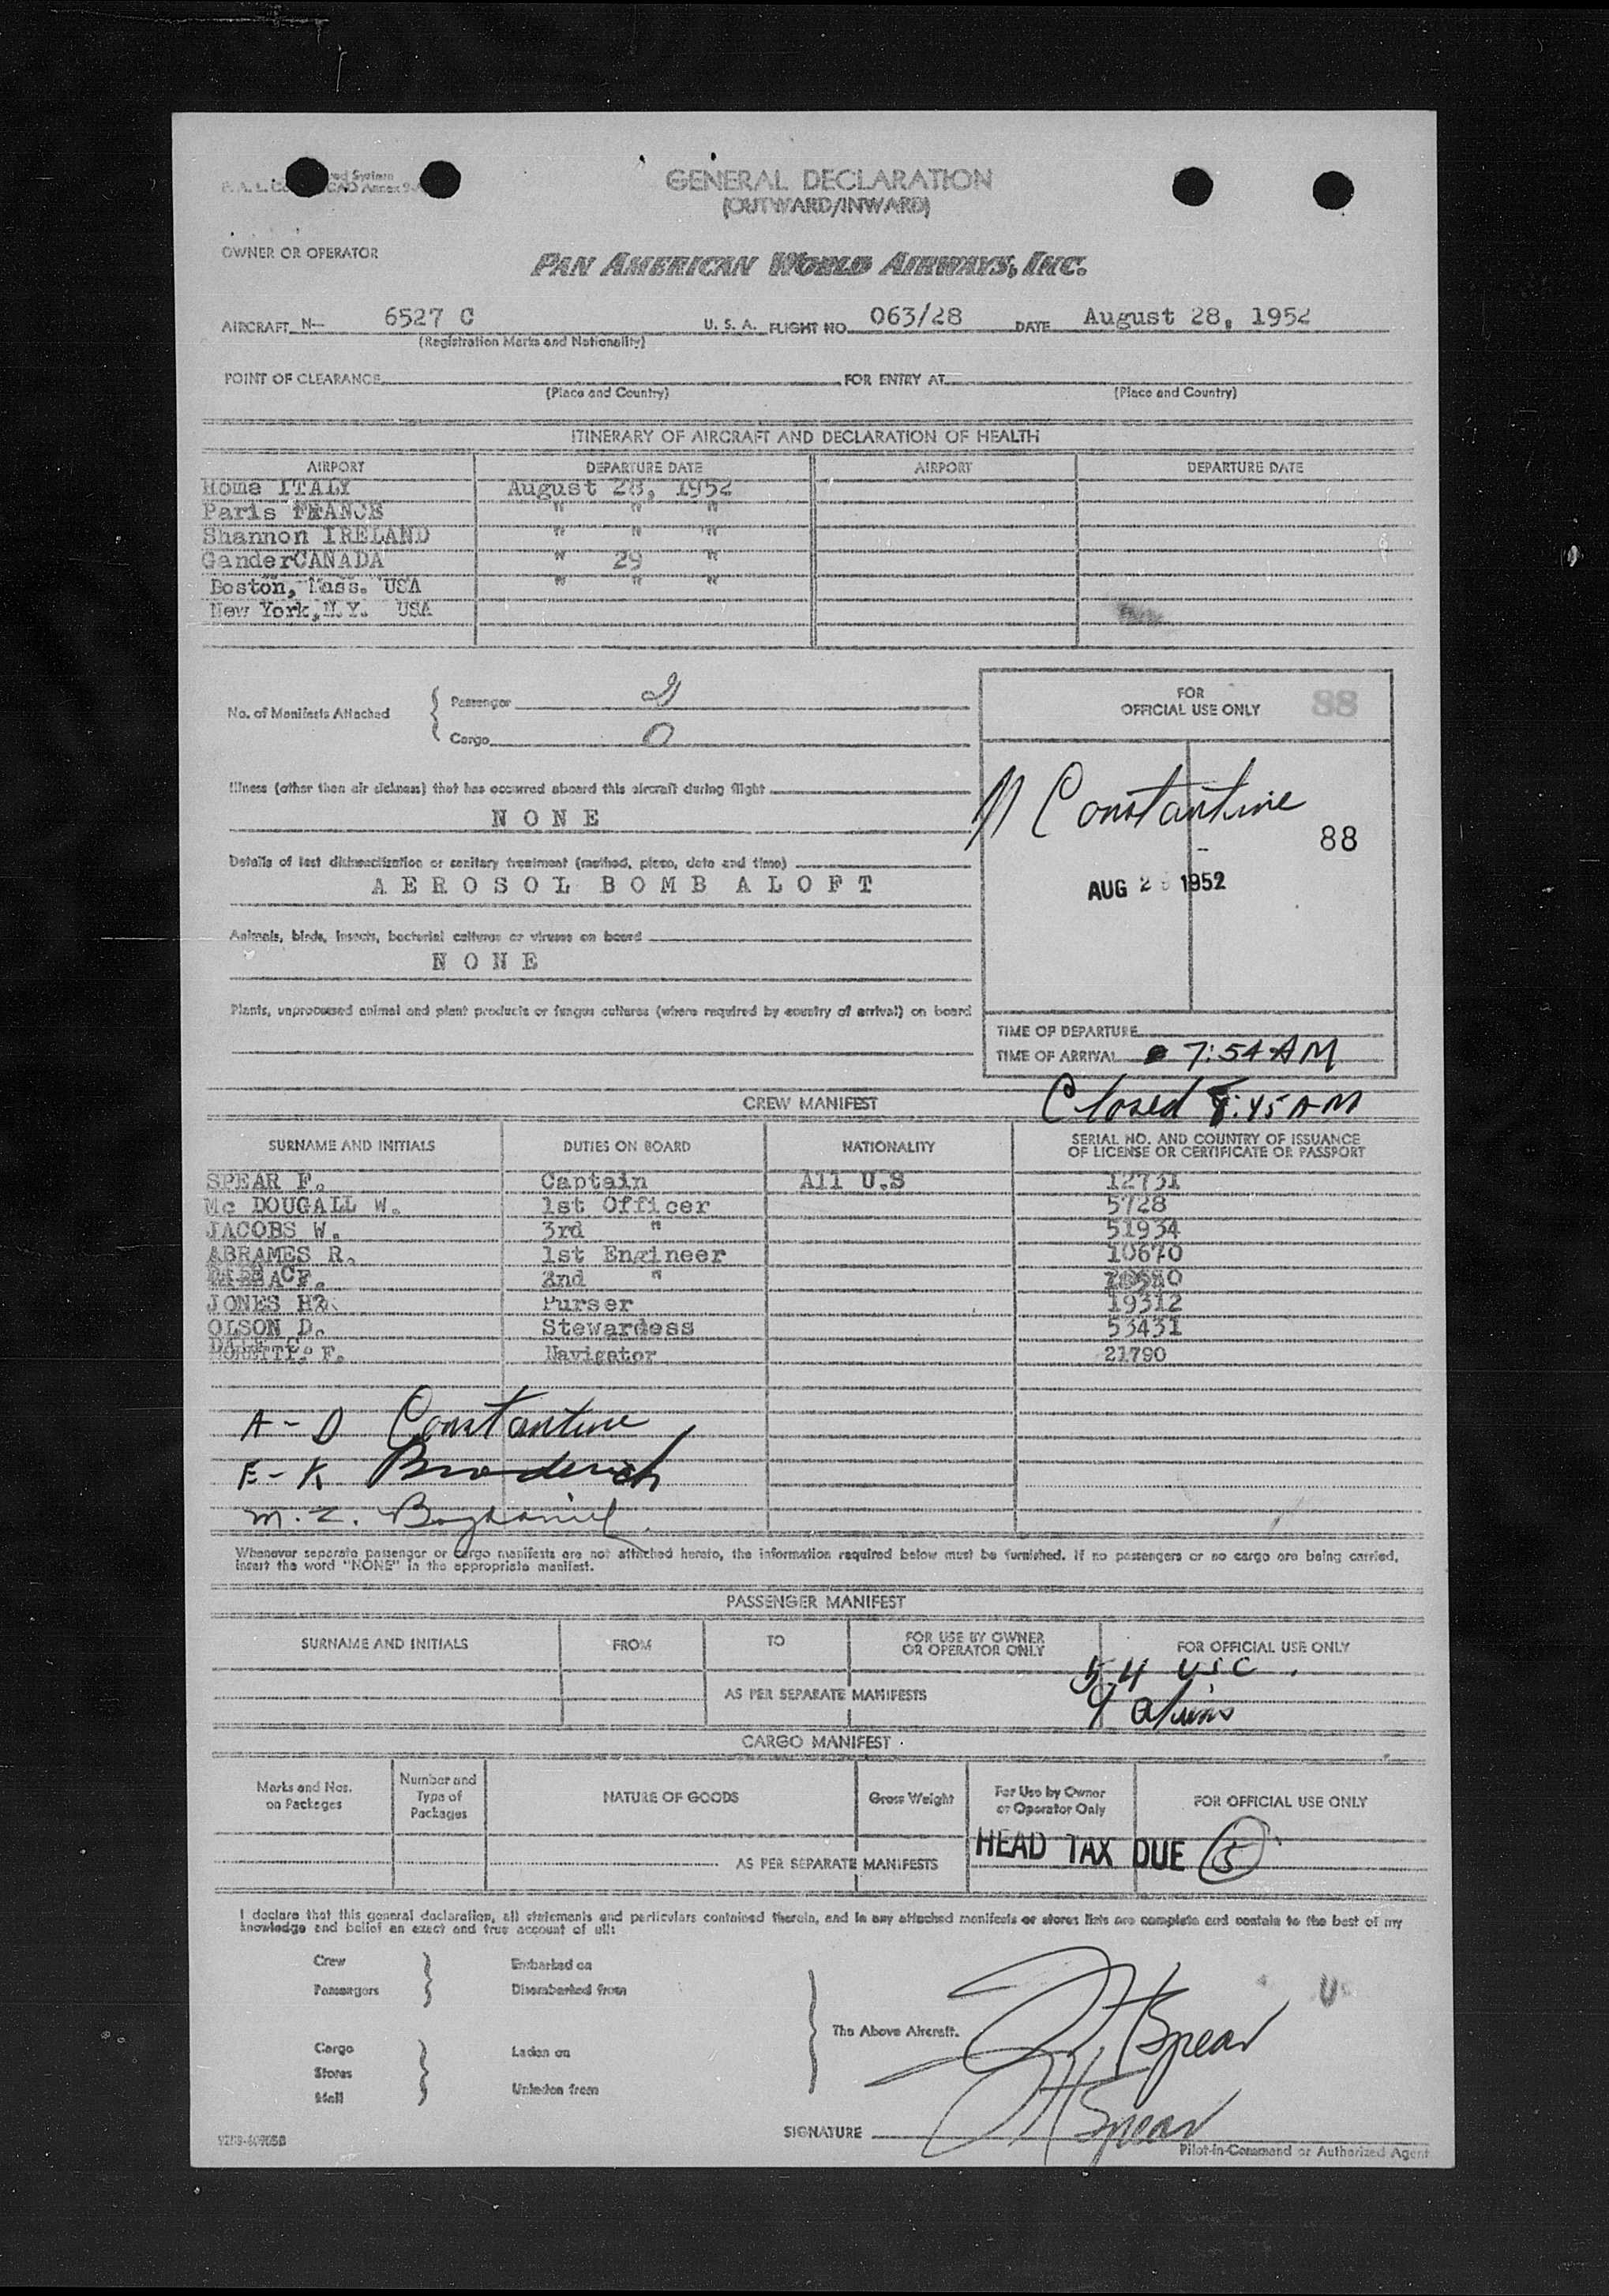 GENERAL DECLARATION
(OUTWARD/INWARD)
OWNER OR OPERATOR
PAN AMERICAN WORLD AIRWAYS, INC.
AIRCRAFT N- 6527 C U. S. A. FLIGHT NO. 063/28 DATE August 28, 1952
(Registration Marks and Nationality)
POINT OF CLEARANCE FOR ENTRY AT
(Place and Country) (Place and Country)
ITINERARY OF AIRCRAFT AND DECLARATION OF HEALTH
AIRPORT DEPARTURE DATE AIRPORT DEPARTURE DATE
Rome ITALY August 28, 1952
Paris FRANCE " " "
Shannon IRELAND " " "
GanderCANADA " 29 "
Boston, Mass. USA " " "
New York,N.Y. USA
No. of Manifests Attached
Passenger 2
Cargo 0
FOR
OFFICIAL USE ONLY 88
Illness (other than air sickness) that has occurred aboard this aircraft during flight
N O N E
Constantine
88
Details of last disinsectization or sanitary treatment (method, place, date and time)
A E R O S O L B O M B A L O F T
AUG 2 1952
Animals, birds, insects, bacterial cultures or viruses on board
N O N E
Plants, unprocessed animal and plant products or fungus cultures (where required by country of arrival) on board
TIME OF DEPARTURE
TIME OF ARRIVAL 7:54 AM
Closed 8:45 AM
CREW MANIFEST
SURNAME AND INITIALS DUTIES ON BOARD NATIONALITY SERIAL NO. AND COUNTRY OF ISSUANCE
OF LICENSE OR CERTIFICATE OR PASSPORT
SPEAR F. Captain All U.S 12731
Mc DOUGALL W. 1st Officer 5728
JACOBS W. 3rd " 51934
ABRAMES R. 1st Engineer 10670
2nd "
JONES H Purser 19312
OLSON D. Stewardess 53431
F. Navigator 21790
A - D Constantine
E - K Broderick
M. Z.
Whenever separate passenger or cargo manifests are not attached hereto, the information required below must be furnished. If no passengers or no cargo are being carried,
insert the word "NONE" in the appropriate manifest.
PASSENGER MANIFEST
SURNAME AND INITIALS FROM TO FOR USE BY OWNER
OR OPERATOR ONLY FOR OFFICIAL USE ONLY
54 USC
AS PER SEPARATE MANIFESTS
9 aliens
CARGO MANIFEST
Marks and Nos.
on Packages
Number and
Type of
Packages
NATURE OF GOODS
Gross Weight
For Use by Owner
or Operator Only
FOR OFFICIAL USE ONLY
HEAD TAX DUE 5
AS PER SEPARATE MANIFESTS
I declare that this general declaration, all statements and particulars contained therein, and in any attached manifests or stores lists are complete and contain to the best of my
knowledge and belief an exact and true account of all:
Crew
Passengers
Embarked on
Disembarked from
Cargo
Stores
Mail
Laden on
Unladen from
The Above Aircraft.
Spear
SIGNATURE Spear
Pilot-in-Command or Authorized Agent